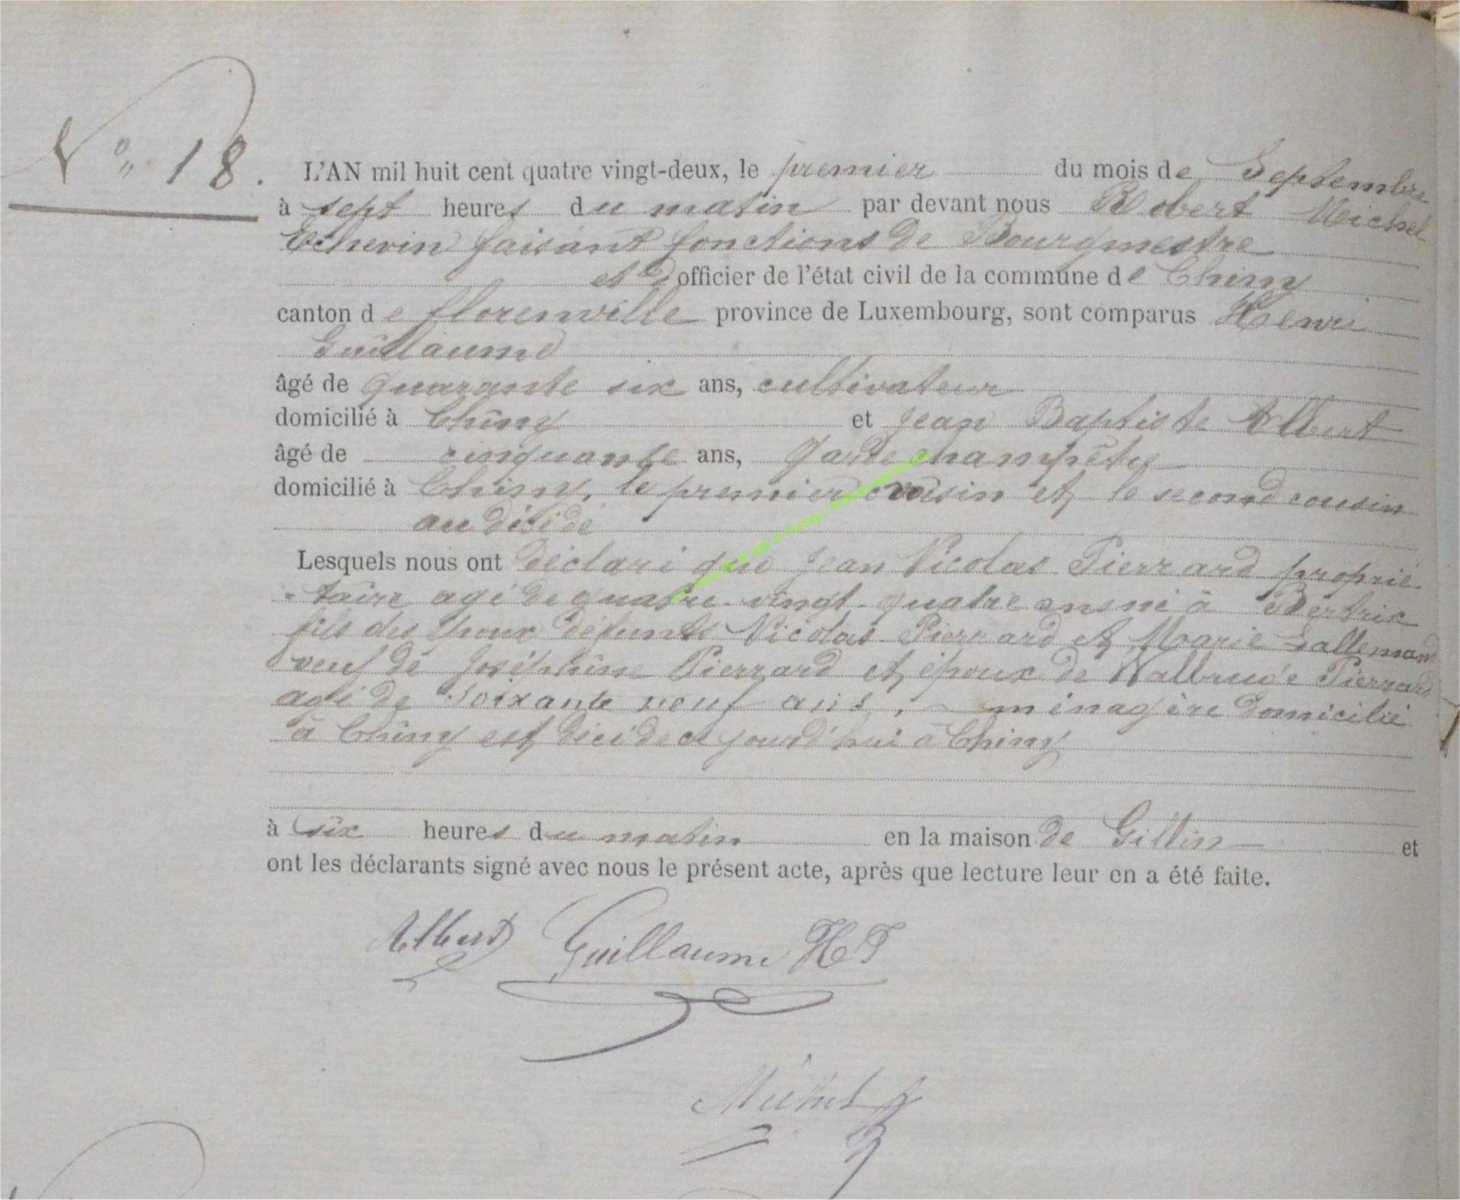 N° 18.
L'AN mil huit cent quatre vingt-deux, le premier du mois de Septembre
à sept heures du matin par devant nous Robert Michel
Echevin faisant fonctions de Bourgmestre
et d'officier de l'état civil de la commune de Chiny
canton de florenville province de Luxembourg, sont comparus Henri
Guillaume
âgé de quarante six ans, cultivateur
domicilié à Chiny et jean Baptiste Albert
âgé de cinquante ans, garde champêtre
domicilié à Chiny, le premier voisin et le second cousin
au décédé
Lesquels nous ont déclaré que jean Nicolas Pierrard proprié
-taire agé de quatre-vingt-quatre ans né à Bertrix
fils des époux défunts Nicolas Pierrard et Marie Lallemand
veuf de Joséphine Pierrard et époux de Pierrard
agé de soixante neuf ans, ménagère domicilié
à Chiny est décédé ce jourd'hui à Chiny
à six heures du matin en la maison de Gillin et
ont les déclarants signé avec nous le présent acte, après que lecture leur en a été faite.
Albert Guillaume HJ
Michel